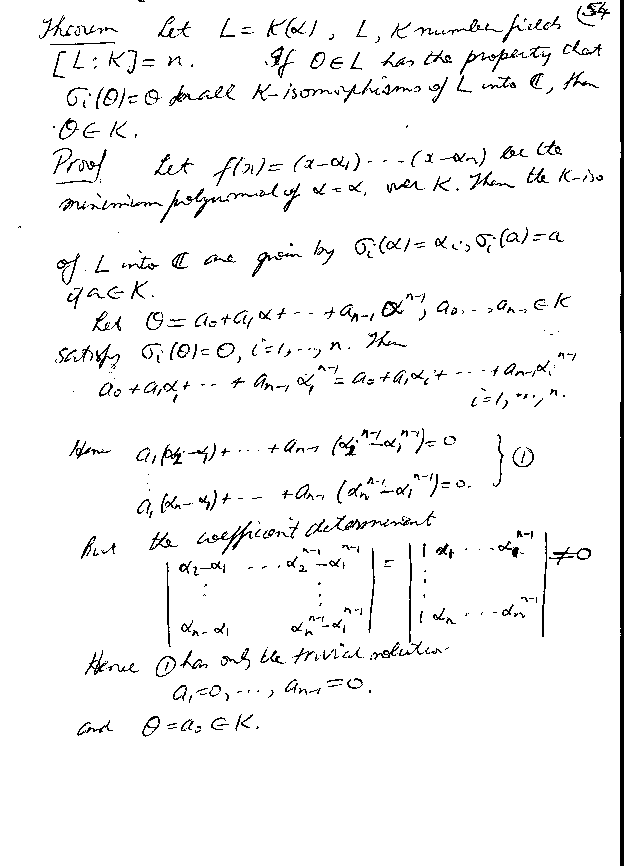 54
Theorem Let L = K(α), L, K number fields
[L:K] = n. If θ ∈ L has the property that
σᵢ(θ) = θ for all K-isomorphisms of L into ℂ, then
θ ∈ K.
Proof Let f(x) = (x-α₁) --- (x-αₙ) be the
minimum polynomial of α = α₁ over K. Then the K-iso
of L into ℂ are given by σᵢ(α) = αᵢ, σᵢ(a) = a
if a ∈ K.
Let θ = a₀ + a₁α + --- + aₙ₋₁ αⁿ⁻¹, a₀, .., aₙ₋₁ ∈ K
satisfy σᵢ(θ) = θ, i=1, ..., n. Then
a₀ + a₁α₁ + -- + aₙ₋₁ α₁ⁿ⁻¹ = a₀ + a₁αᵢ + --- + aₙ₋₁αᵢⁿ⁻¹
i = 1, ..., n.
Hence a₁(α₂-α₁) + --- + aₙ₋₁ (α₂ⁿ⁻¹-α₁ⁿ⁻¹) = 0
⋮ } ①
a₁(αₙ-α₁) + --- + aₙ₋₁ (αₙⁿ⁻¹-α₁ⁿ⁻¹) = 0.
But the coefficient determinant
| α₂-α₁ ---- α₂ⁿ⁻¹-α₁ⁿ⁻¹ | = | 1 α₁ ---- α₁ⁿ⁻¹ | ≠ 0
⋮ ⋮ ⋮
| αₙ-α₁ αₙⁿ⁻¹-α₁ⁿ⁻¹ | | 1 αₙ --- αₙⁿ⁻¹ |
Hence ① has only the trivial solution
a₁=0, ..., aₙ₋₁ = 0.
and θ = a₀ ∈ K.